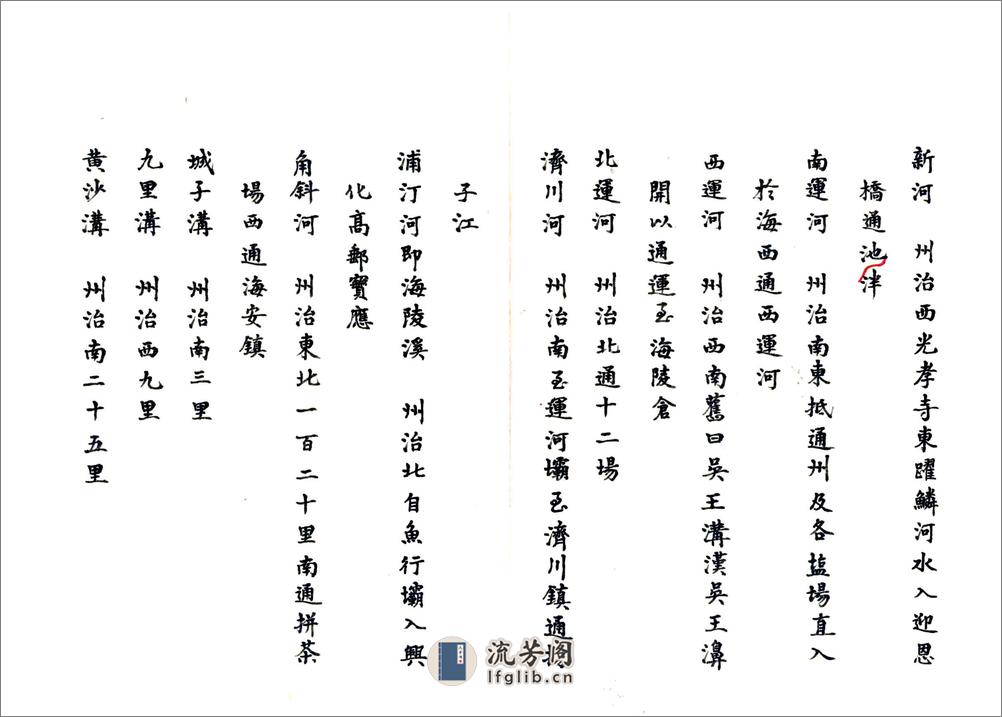 新河　州治西光孝寺東躍鱗河水入迎恩
橋通池泮
南運河　州治南東抵通州及各盐場直入
於海西通西運河
西運河　州治西南舊曰吳王溝漢吳王濞
開以通運至海陵倉
北運河　州治北通十二場
濟川河　州治南至運河壩至濟川鎮通
子江
浦汀河即海陵溪　州治北自魚行壩入興
化高郵寶應
角斜河　州治東北一百二十里南通拼茶
場西通海安鎮
城子溝　州治南三里
九里溝　州治西九里
黄沙溝　州治南二十五里
流芳阁
lfglib.cn